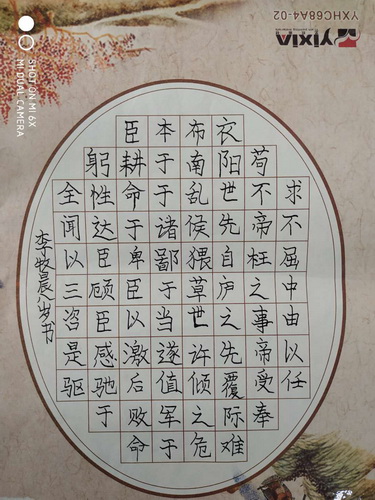 YXHC68A4-02
SHOT ON MI 6X
MI DUAL CAMERA
臣本布衣
躬耕于南阳苟
全性命于乱世不求
闻达于诸侯先帝不
以臣卑鄙猥自枉屈
三顾臣于草庐之中
咨臣以当世之事由
是感激遂许先帝以
驱驰后值倾覆受任
于败军之际奉
命于危难
李牧晨八岁书